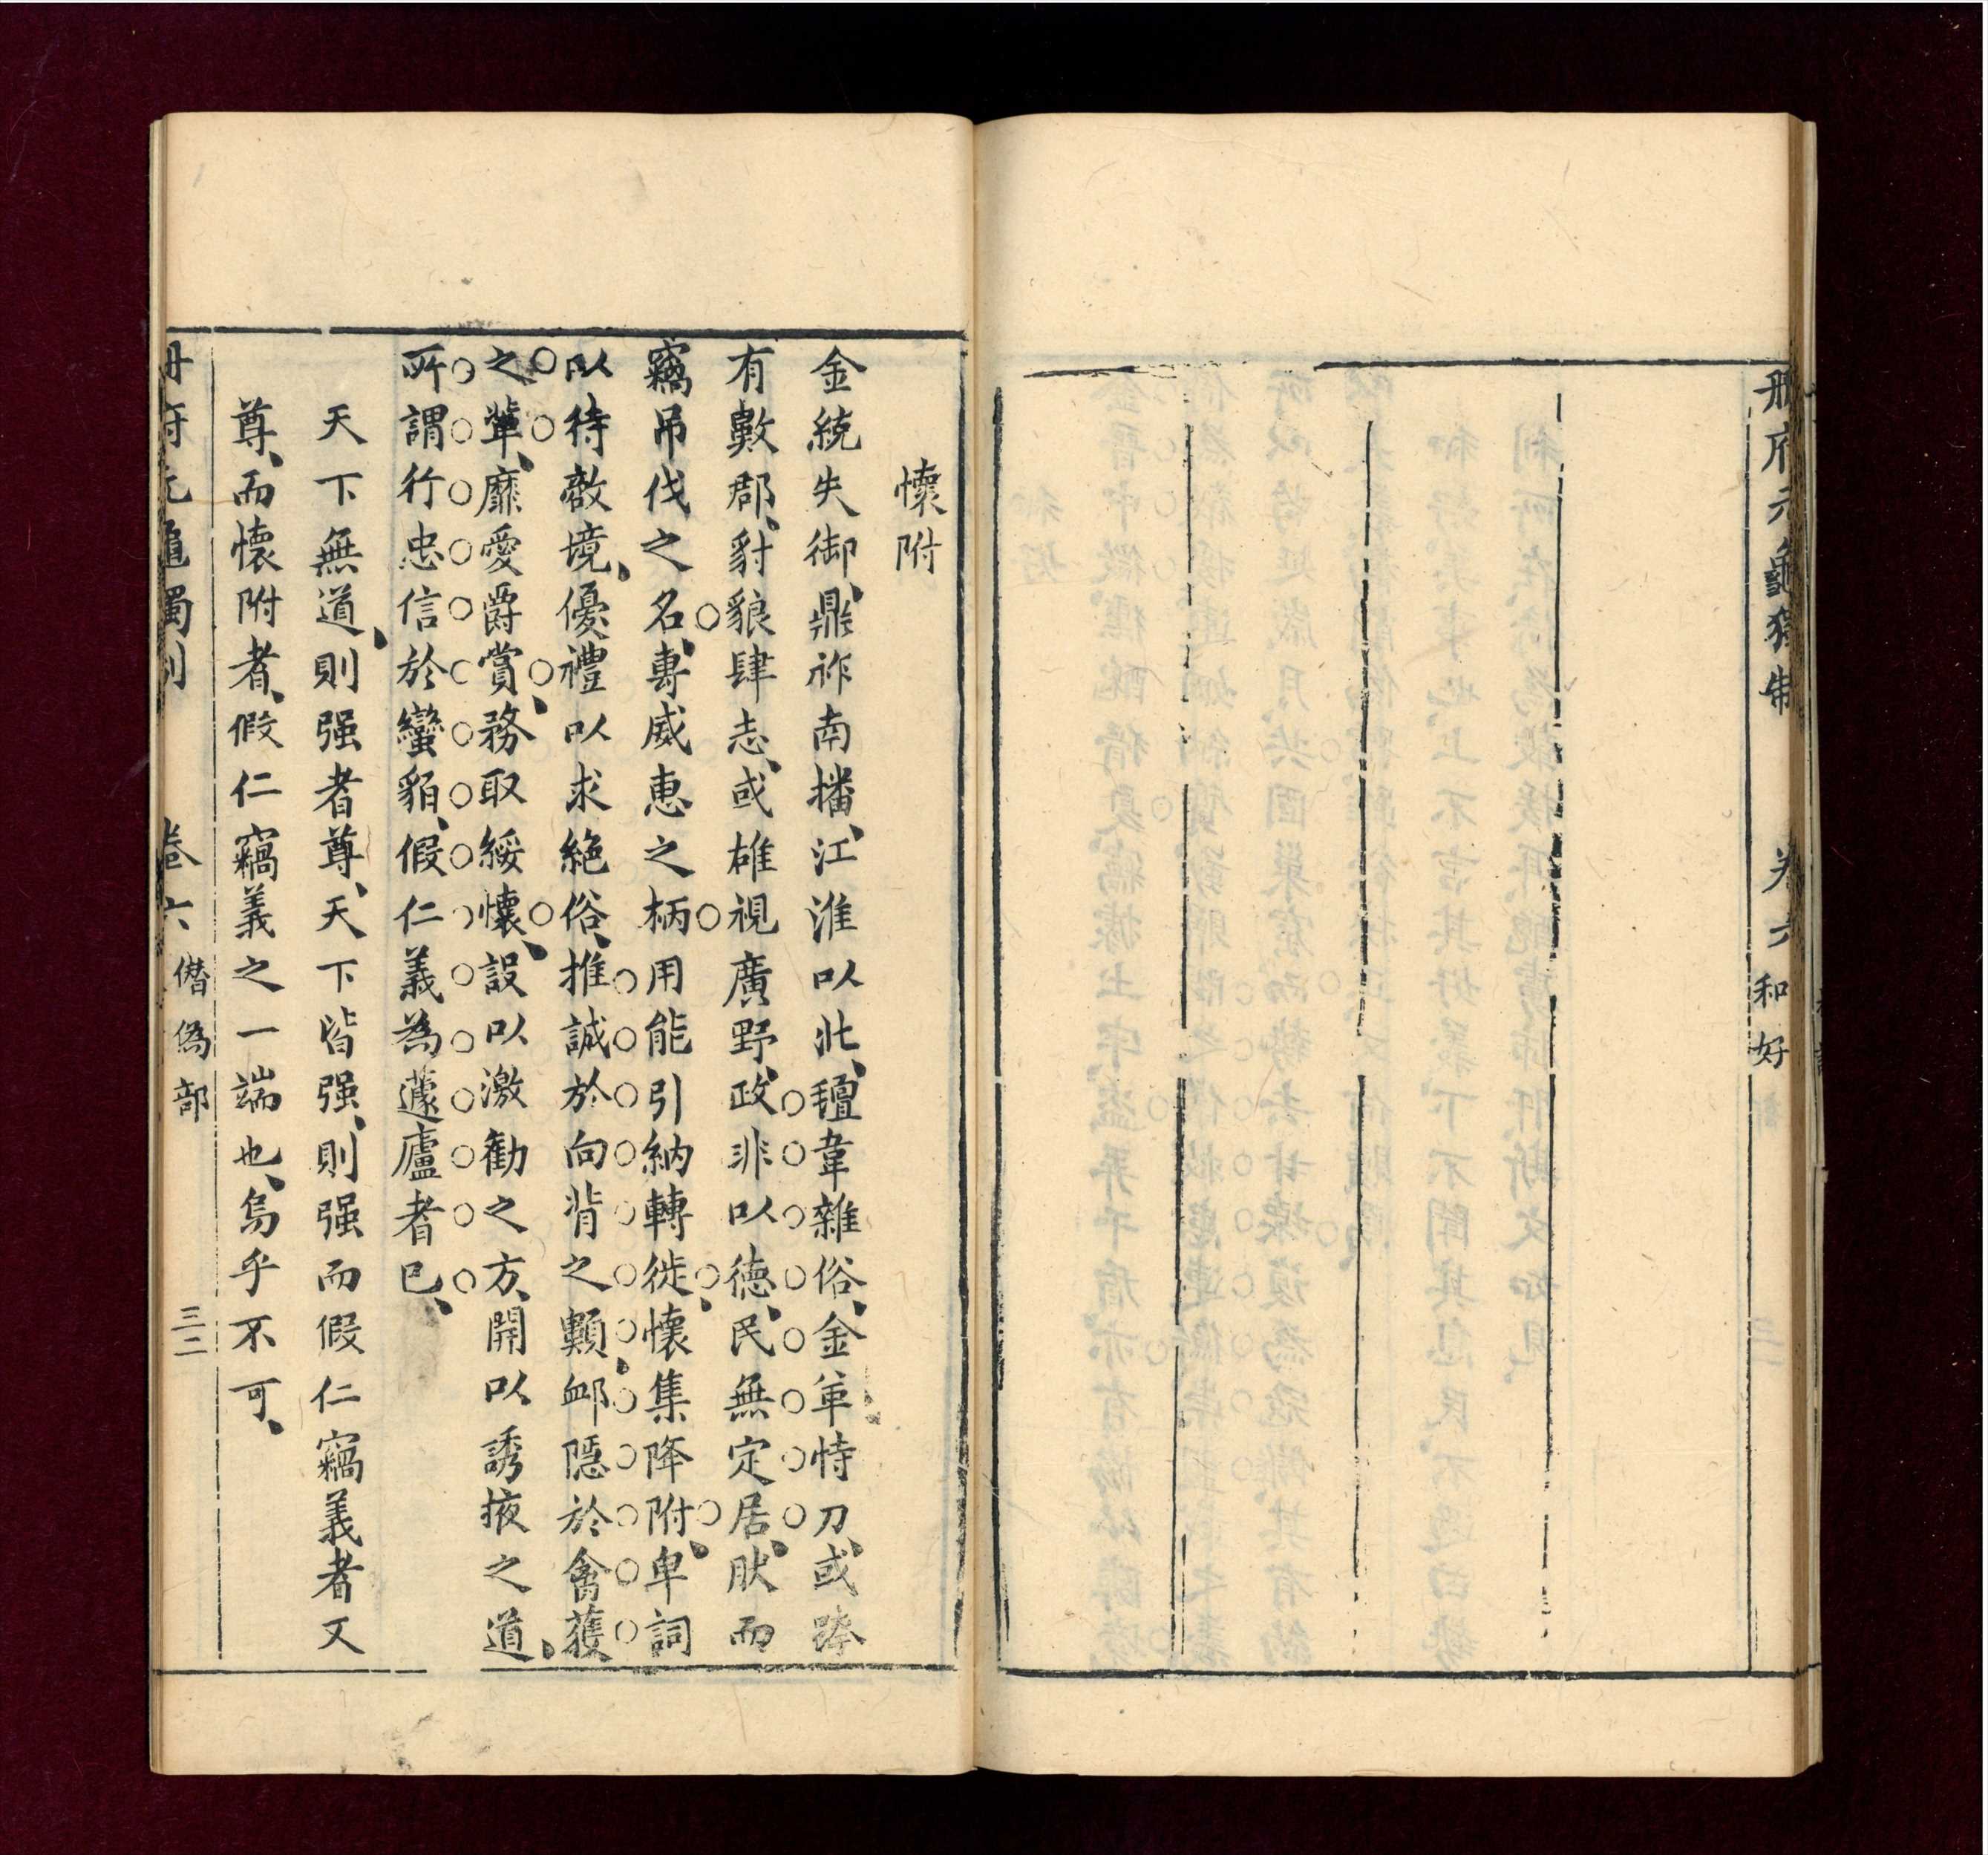 冊府元龜獨制 卷六 和好
懷附
金統失御、鼎祚南播、江淮以北、氊韋雜俗、金革恃刀、或跨
有數郡、豺狼肆志、或雄視廣野、政非以德、民無定居、肰而
竊吊伐之名、專威惠之柄用能引納轉徙、懷集降附、卑詞
以待敵境、優禮以求絕俗、推誠於向背之顆、䘏隱於禽獲
之輩、靡愛爵賞、務取綏懷、設以激勸之方、開以誘掖之道、
所謂行忠信於蠻貊、假仁義為蘧廬者巳、
天下無道、則强者尊、天下皆强、則强而假仁竊義者又
尊、而懷附者、假仁竊義之一端也、烏乎不可、
冊府元龜獨制 卷六 僭偽部 三二